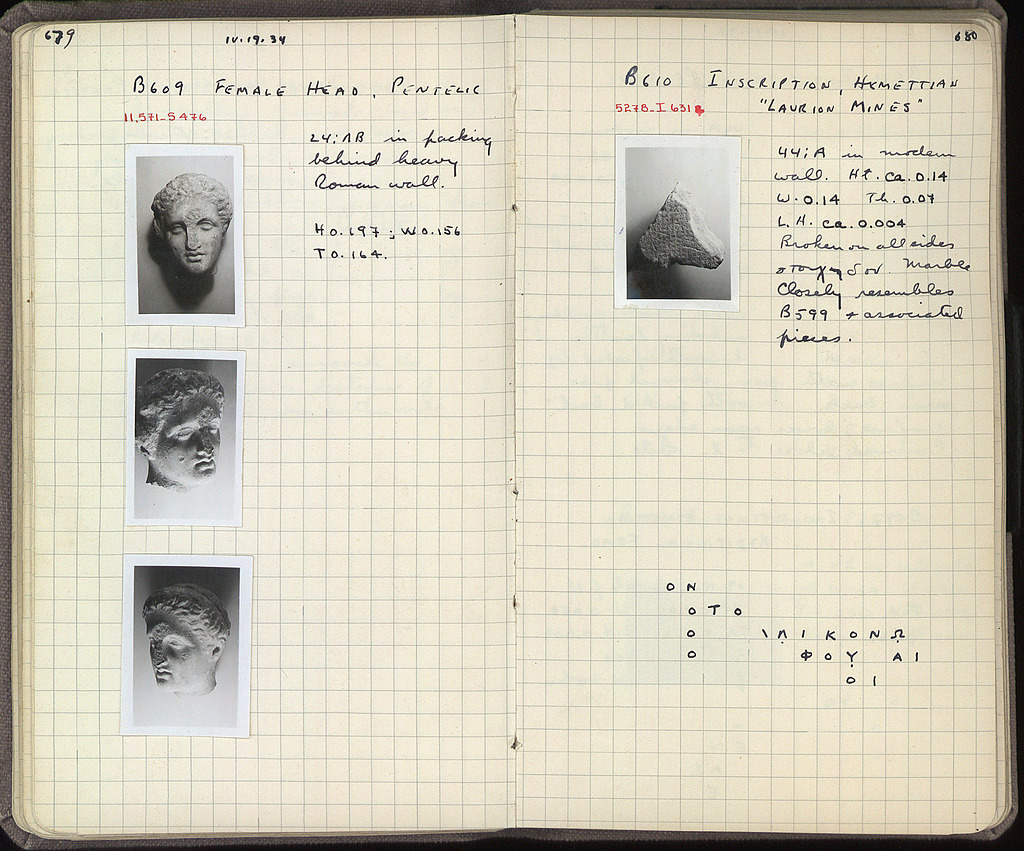 679
IV.19.34
B609 FEMALE HEAD, PENTELIC
11,571-S 476
24:ΛB in packing
behind heavy
Roman wall.
H 0.197; W 0.156
T 0.164.
680
B610 INSCRIPTION, HYMETTIAN
5278-I 631
"LAURION MINES"
44:A in modern
wall. Ht. ca. 0.14
W. 0.14 Th. 0.07
L.H. ca. 0.004
Broken on all sides
Marble
Closely resembles
B599 + associated
pieces.
Ο Ν
Ο Τ Ο
Ο \ Π̣ Ι Κ Ο Ν Ω̣
Ο Φ Ο Υ̣ Α Ι
Ο Ι